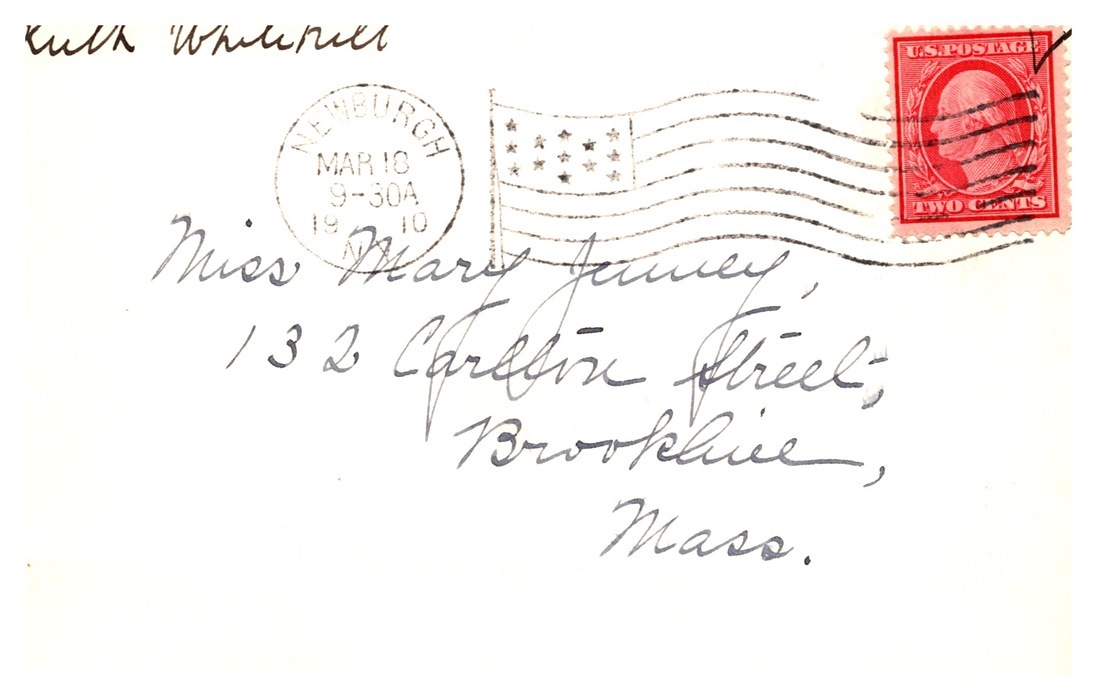 Ruth Whitehill
U.S. POSTAGE
NEWBURGH
MAR 18
9-30A
19 10
N.Y.
TWO CENTS
Miss Mary Jenney,
132 Carlton Street,
Brookline,
Mass.